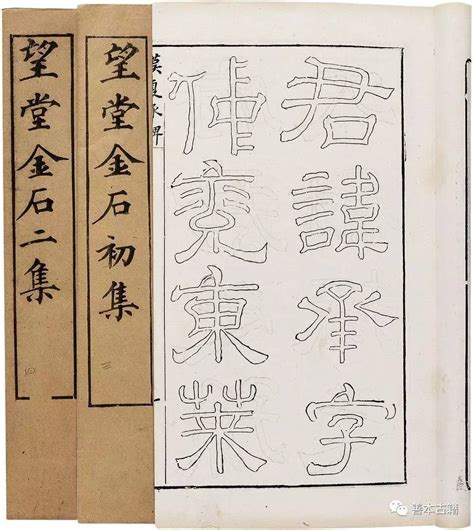 君諱承字
仲兖東萊
漢夏承碑
望堂金石初集
三
望堂金石二集
四
善本古籍